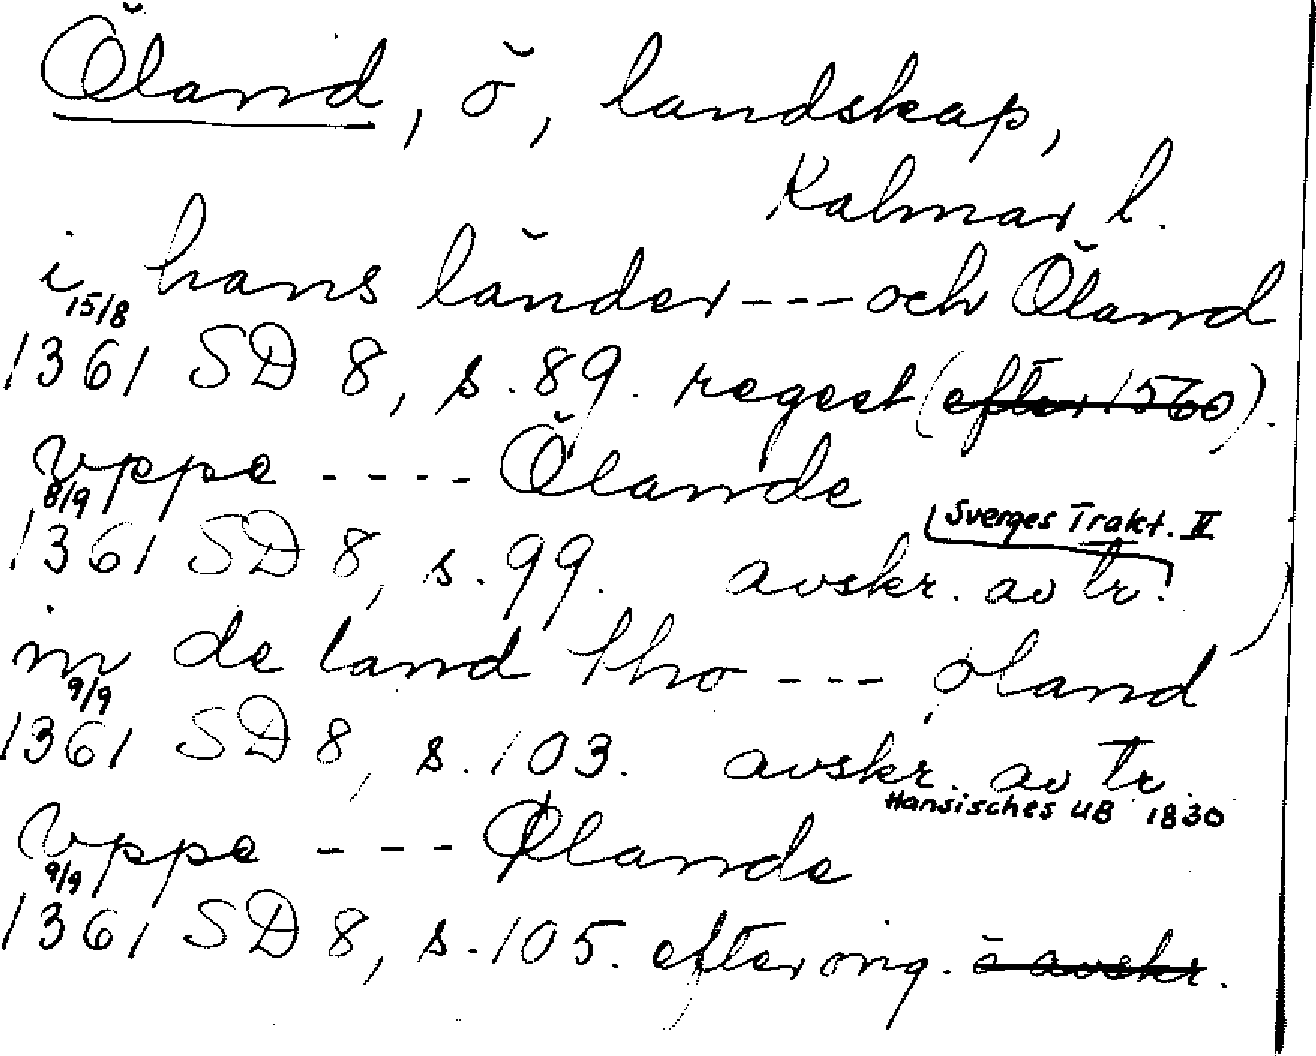 Öland, ö, landskap,
Kalmar l.
i hans länder --- och Öland
15/8
1361 SD 8, s. 89. regest (efter 1560).
vppe ---- Ölande
8/9
Sverges Trakt. II
1361 SD 8, s. 99. avskr. av tr.
in de land tho --- oland
9/9
1361 SD 8, s. 103. avskr. av tr.
Hansisches UB 1830
vppe --- Ølande
9/9
1361 SD 8, s. 105. efter orig. o avskr.